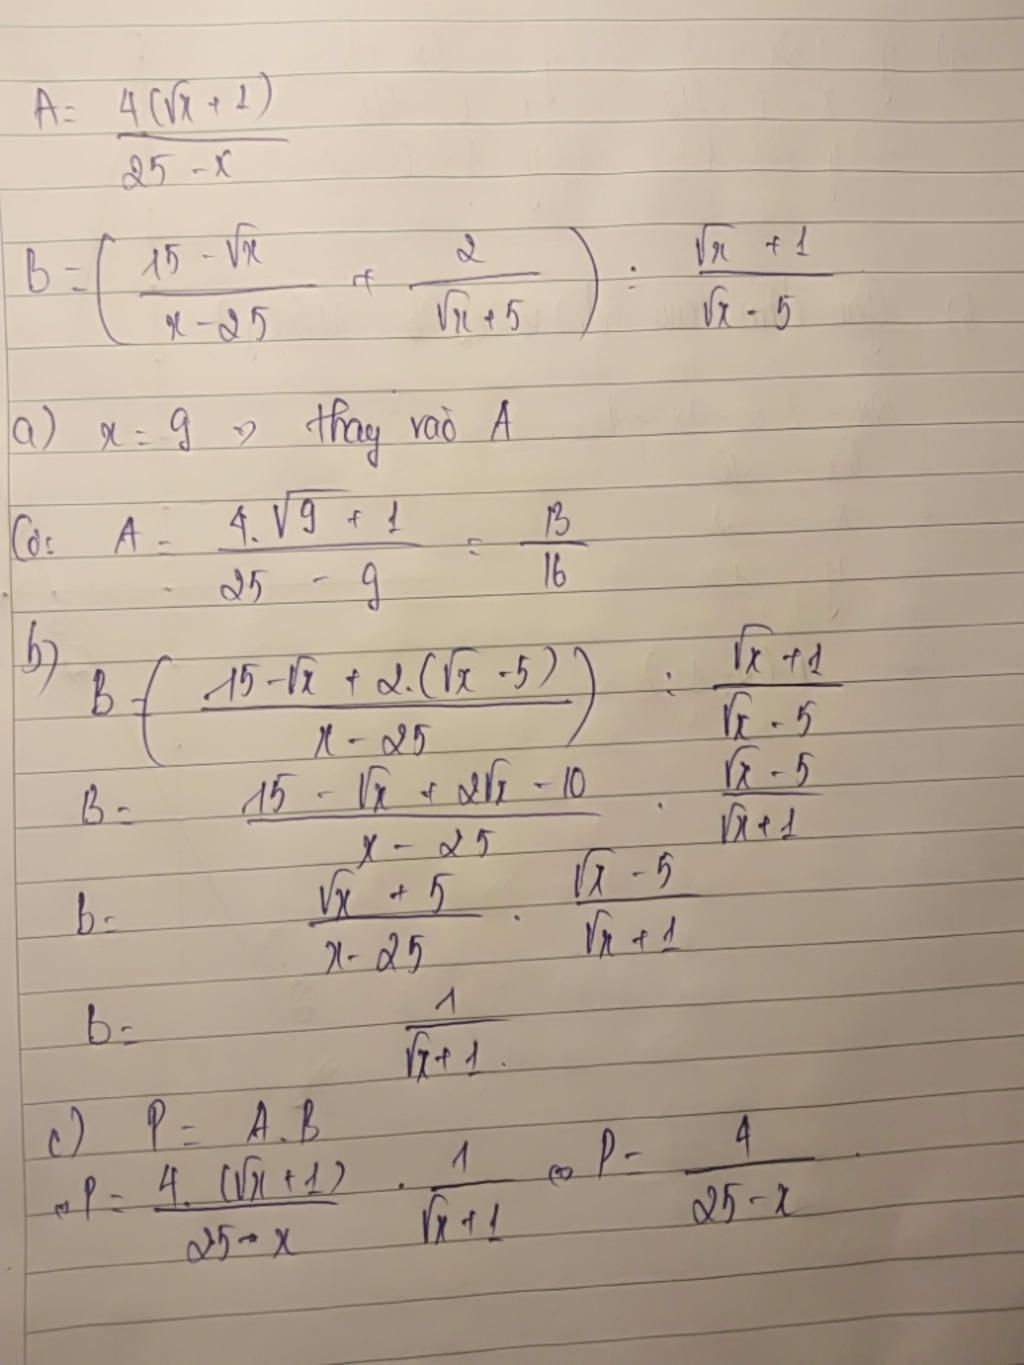 A = 4(√x + 1) / 25 - x
B = ( 15 - √x / x - 25 + 2 / √x + 5 ) : √x + 1 / √x - 5
a) x = 9 => thay vào A
Có: A = 4.√9 + 1 / 25 - 9 = 13 / 16
b) B = ( 15 - √x + 2.(√x - 5) / x - 25 ) : √x + 1 / √x - 5
B = 15 - √x + 2√x - 10 / x - 25 . √x - 5 / √x + 1
B = √x + 5 / x - 25 . √x - 5 / √x + 1
B = 1 / √x + 1 .
c) P = A.B
⇔ P = 4.(√x + 1) / 25 - x . 1 / √x + 1 ⇔ P = 4 / 25 - x .